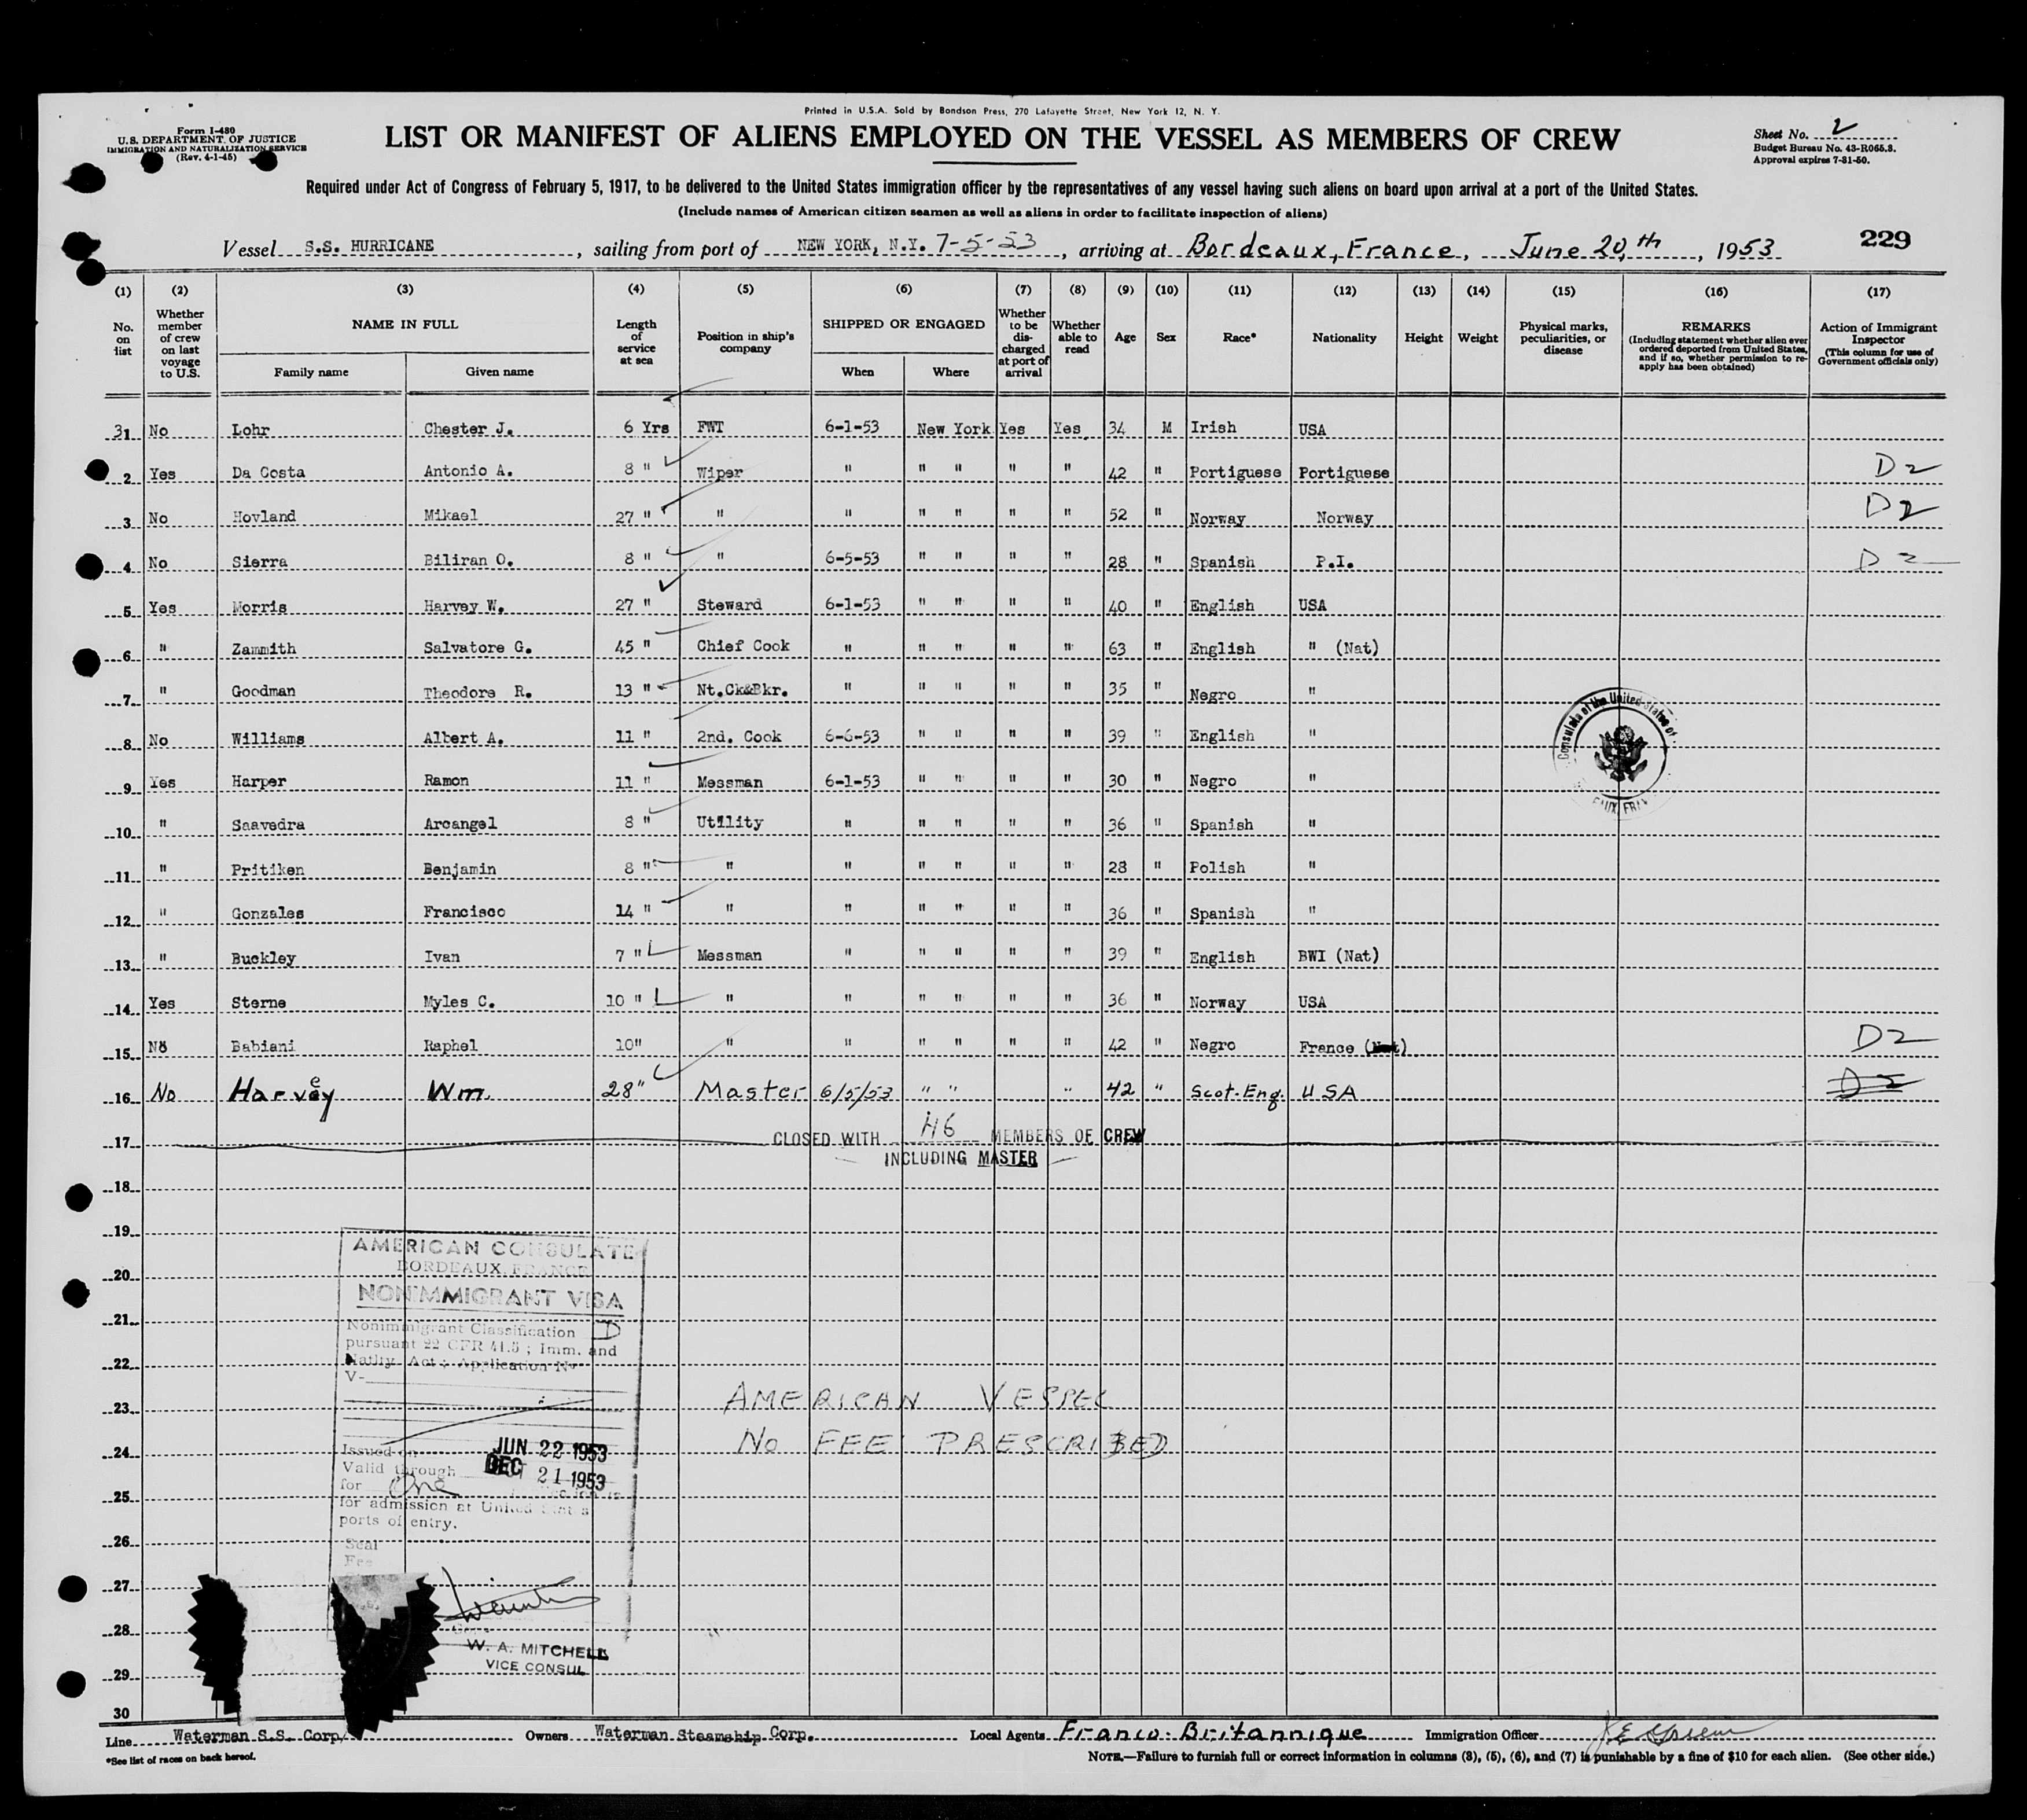 Printed in U.S.A. Sold by Bondson Press, 270 Lafayette Street, New York 12, N. Y.
Form I-480
U.S. DEPARTMENT OF JUSTICE
IMMIGRATION AND NATURALIZATION SERVICE
(Rev. 4-1-45)
LIST OR MANIFEST OF ALIENS EMPLOYED ON THE VESSEL AS MEMBERS OF CREW
Sheet No. 2
Budget Bureau No. 43-R065.3.
Approval expires 7-31-50.
Required under Act of Congress of February 5, 1917, to be delivered to the United States immigration officer by the representatives of any vessel having such aliens on board upon arrival at a port of the United States.
(Include names of American citizen seamen as well as aliens in order to facilitate inspection of aliens)
Vessel S.S. HURRICANE, sailing from port of NEW YORK, N.Y. 7-5-53, arriving at Bordeaux, France, June 20th, 1953
229
(1) No. on list
(2) Whether member of crew on last voyage to U.S.
(3) NAME IN FULL Family name Given name
(4) Length of service at sea
(5) Position in ship's company
(6) SHIPPED OR ENGAGED When Where
(7) Whether to be discharged at port of arrival
(8) Whether able to read
(9) Age
(10) Sex
(11) Race*
(12) Nationality
(13) Height
(14) Weight
(15) Physical marks, peculiarities, or disease
(16) REMARKS (Including statement whether alien ever ordered deported from United States, and if so, whether permission to reapply has been obtained)
(17) Action of Immigrant Inspector (This column for use of Government officials only)
31 No Lohr Chester J. 6 Yrs FWT 6-1-53 New York Yes Yes 34 M Irish USA
2 Yes Da Costa Antonio A. 8 " Wiper " " " " " 42 " Portiguese Portiguese D2
3 No Hovland Mikael 27 " " " " " " " 52 " Norway Norway D2
4 No Sierra Biliran O. 8 " " 6-5-53 " " " " 28 " Spanish P.I. D2
5 Yes Morris Harvey W. 27 " Steward 6-1-53 " " " " 40 " English USA
6 " Zammith Salvatore G. 45 " Chief Cook " " " " " 63 " English " (Nat)
7 " Goodman Theodore R. 13 " Nt.Ck&Bkr. " " " " " 35 " Negro "
8 No Williams Albert A. 11 " 2nd. Cook 6-6-53 " " " " 39 " English "
9 Yes Harper Ramon 11 " Messman 6-1-53 " " " " 30 " Negro "
10 " Saavedra Arcangel 8 " Utility " " " " " 36 " Spanish "
11 " Pritiken Benjamin 8 " " " " " " " 28 " Polish "
12 " Gonzales Francisco 14 " " " " " " " 36 " Spanish "
13 " Buckley Ivan 7 " Messman " " " " " 39 " English BWI (Nat)
14 Yes Sterne Myles C. 10 " " " " " " " 36 " Norway USA
15 No Babiani Raphel 10" " " " " " " 42 " Negro France (Nat) D2
16 No Harvey Wm. 28" Master 6/5/53 " " " 42 " Scot-Eng. USA D2
17 CLOSED WITH 46 MEMBERS OF CREW
INCLUDING MASTER
18
19
20
21
22
23
24
25
26
27
28
29
30
Consulate of the United States of
AMERICAN CONSULATE
BORDEAUX, FRANCE
NONIMMIGRANT VISA
Nonimmigrant Classification D
pursuant 22 CFR 41.5; Imm. and
Natlty. Act; Application No
V-
Issued on JUN 22 1953
Valid through DEC 21 1953
for One
for admission at United States
ports of entry.
Seal
Fee
W. A. MITCHELL
VICE CONSUL
AMERICAN VESSEL
NO FEE PRESCRIBED
Line Waterman S.S. Corp. Owners Waterman Steamship Corp. Local Agents Franco-Britannique Immigration Officer
*See list of races on back hereof.
NOTE.—Failure to furnish full or correct information in columns (3), (5), (6), and (7) is punishable by a fine of $10 for each alien. (See other side.)